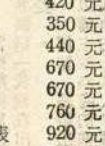 420 元
350 元
440 元
670 元
670 元
760 元
表 920 元